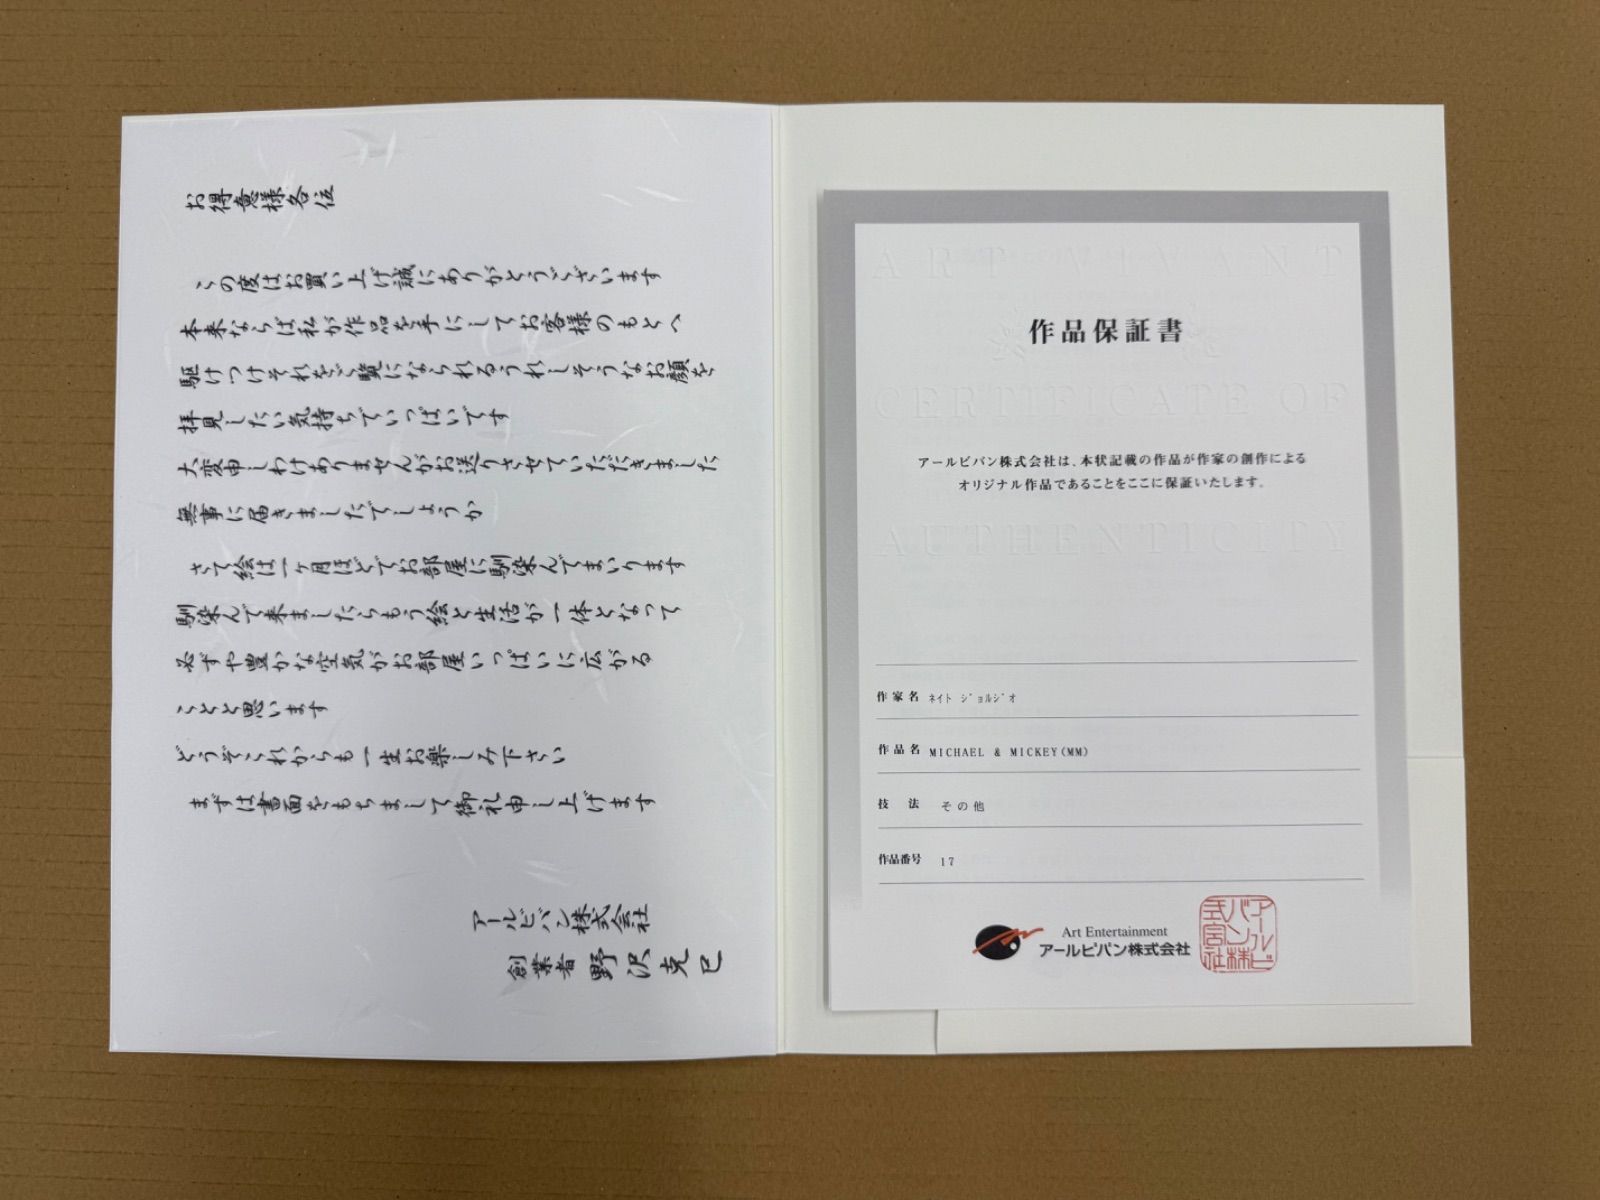 お得意様各位
この度はお買い上げ誠にありがとうございます
本来ならば私が作品を手にしてお客様のもとへ
駆けつけそれをご覧になられるうれしそうなお顔を
拝見したい気持ちでいっぱいです
大変申しわけありませんがお送りさせていただきました
無事に届きましたでしょうか
さて絵は一ヶ月ほどでお部屋に馴染んでまいります
馴染んで来ましたらもう絵と生活が一体となって
必ずや豊かな空気がお部屋いっぱいに広がる
ことと思います
どうぞこれからも一生お楽しみ下さい
まずは書面をもちまして御礼申し上げます
アールビバン株式会社
創業者 野沢克巳
ART VIVANT
作品保証書
CERTIFICATE OF
アールビバン株式会社は、本状記載の作品が作家の創作による
オリジナル作品であることをここに保証いたします。
AUTHENTICITY
作家名 ネイト ジョルジオ
作品名 MICHAEL & MICKEY(MM)
技法 その他
作品番号 17
Art Entertainment
アールビバン株式会社
アールビバン株式会社